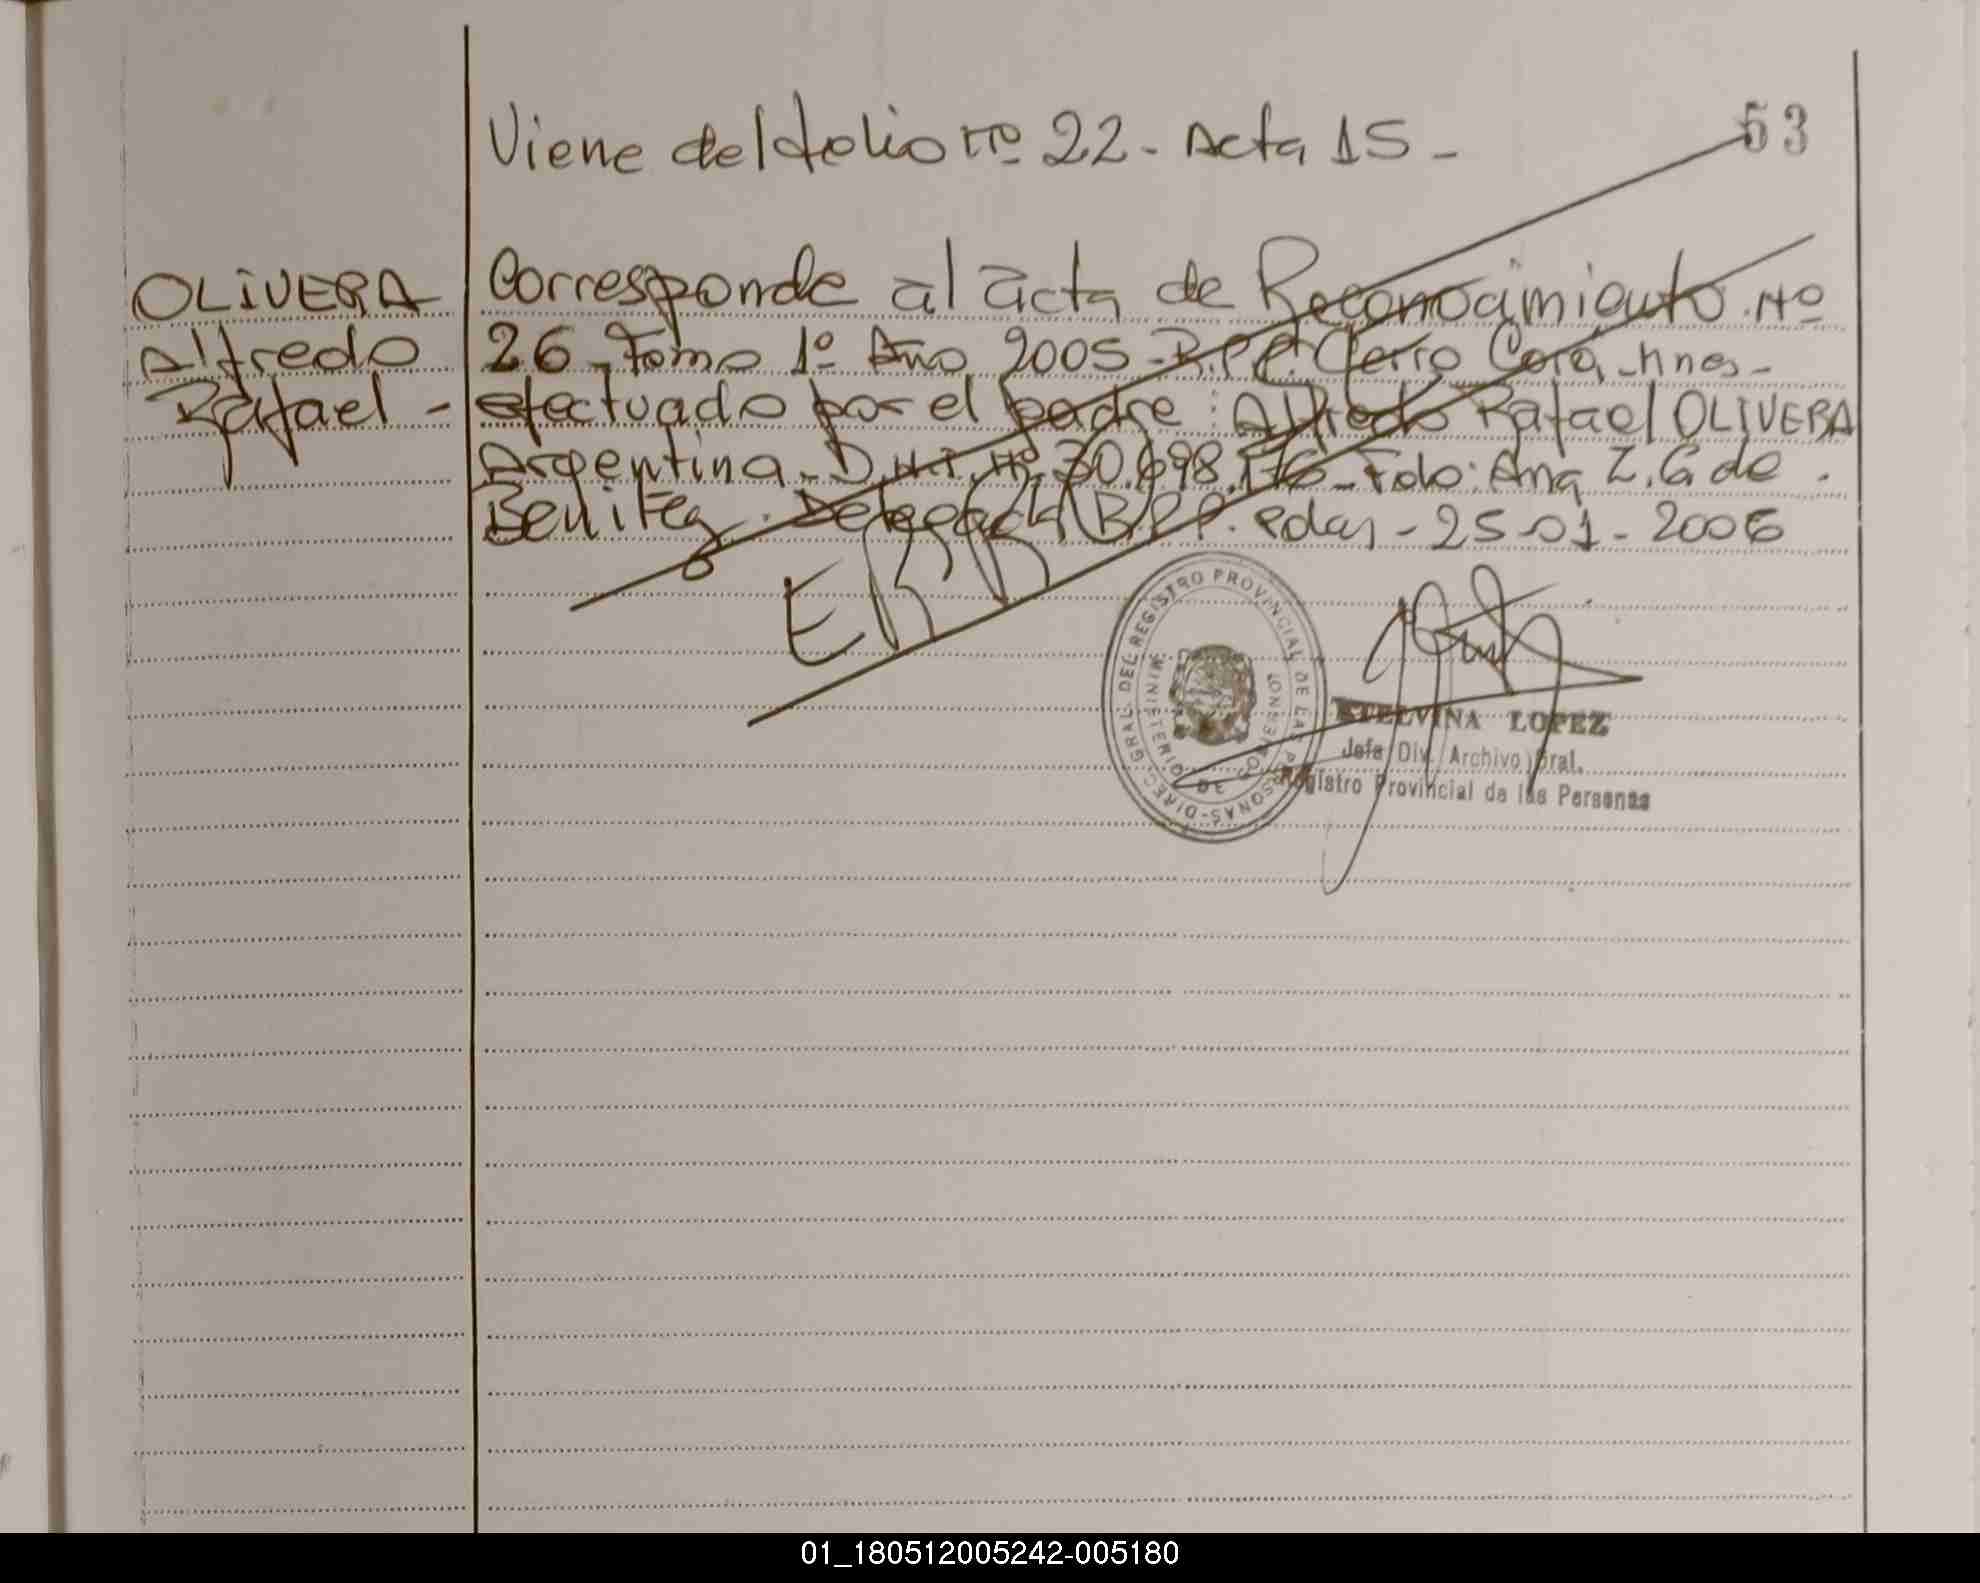 Viene del folio Nº 22 - Acta 15 -
53
OLIVERA
Alfredo
Rafael -
Corresponde al acta de Reconocimiento Nº
26 - Tomo 1º Año 2005 - R.P.P. Cerro Corá, Mnes -
efectuado por el padre: Alfredo Rafael OLIVERA
Argentina - D.N.I. Nº 30.698.176 - Fdo: Ana Z. G. de
Benitez. Delegada R.P.P. Pdas - 25-01-2006
DIREC. GRAL. DEL REGISTRO PROVINCIAL DE LAS PERSONAS
MINISTERIO DE GOBIERNO
ETELVINA LOPEZ
Jefa Div. Archivo Gral.
Registro Provincial de las Personas
01_180512005242-005180